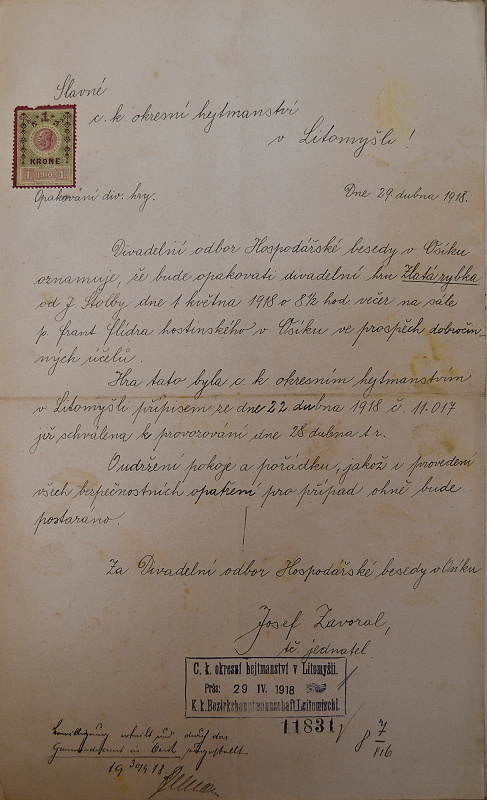 Slavné
c. k okresní hejtmanství
v Litomyšli!
1
KRONE
1 1910 1
Opakování div. hry.
Dne 29 dubna 1918.
Divadelní odbor Hospodářské besedy v Osíku
oznamuje, že bude opakovati divadelní hru Zlatá rybka
od J. Štolby dne 1 května 1918 o 8½ hod. večer na sále
p. Frant Flídra hostinského v Osíku ve prospěch dobročin-
ných účelů.
Hra tato byla c. k okresním hejtmanstvím
v Litomyšli přípisem ze dne 22 dubna 1918 č. 11.017
již schválena k provozování dne 28 dubna t. r.
O udržení pokoje a pořádku, jakož i provedení
všech bezpečnostních opatření pro případ ohně bude
postaráno.
Za Divadelní odbor Hospodářské besedy v Osíku
Josef Zavoral,
tč. jednatel
C. k. okresní hejtmanství v Litomyšli.
Präs: 29 IV. 1918
K. k. Bezirkshauptmannschaft Leitomischl.
11831
8 7/816
Bewilligung erteilt und durch das
Gemeindeamt in zugestellt
19 30/4 18.